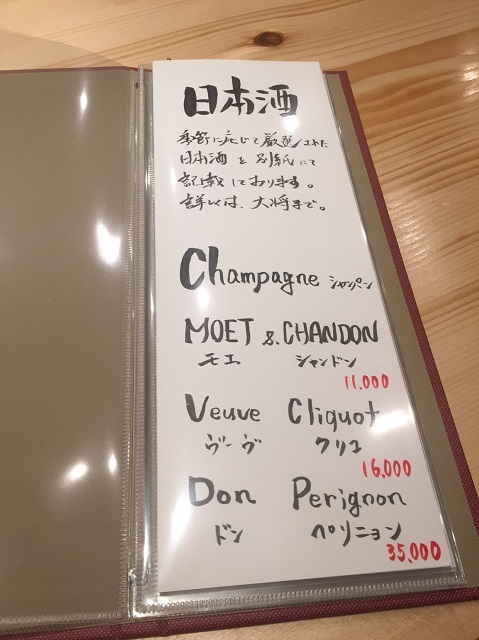 日本酒
季節に応じて厳選された
日本酒を別紙にて
記載しております。
詳しくは、大将まで。
Champagne シャンパン
MOET & CHANDON
モエ シャンドン
11,000
Veuve Cliquot
ヴーヴ クリコ
16,000
Don Perignon
ドン ペリニョン
35,000